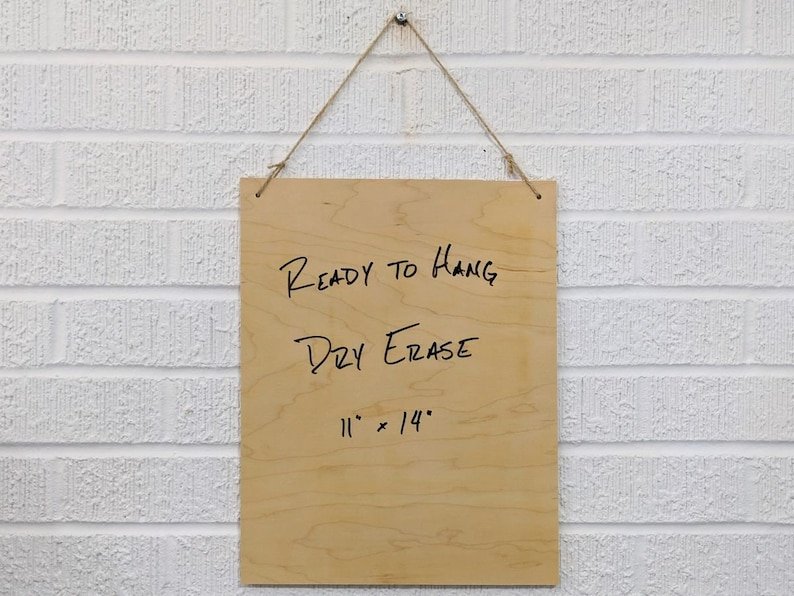 Ready to Hang
Dry Erase
11" x 14"